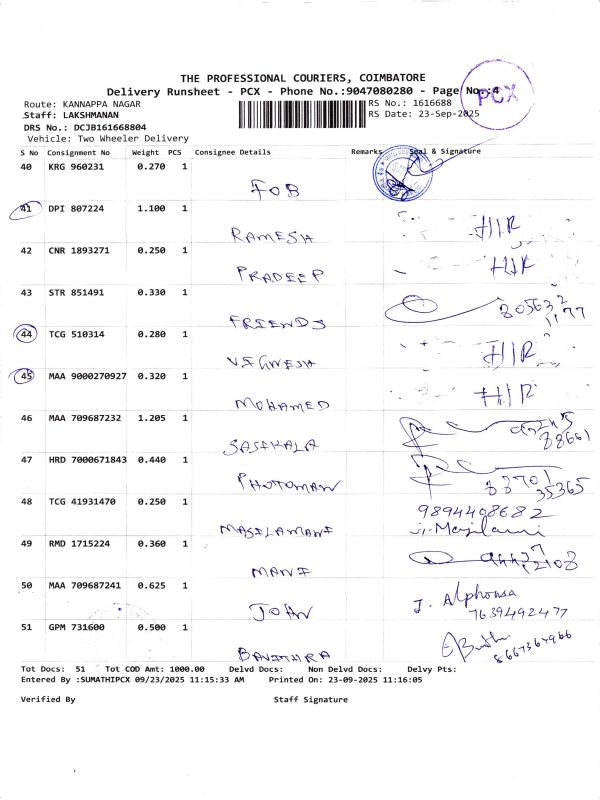 THE PROFESSIONAL COURIERS, COIMBATORE
Delivery Runsheet - PCX - Phone No.:9047080280 - Page No.:4
PCX
Route: KANNAPPA NAGAR RS No.: 1616688
Staff: LAKSHMANAN RS Date: 23-Sep-2025
DRS No.: DCJB161668804
Vehicle: Two Wheeler Delivery
S No Consignment No Weight PCS Consignee Details Remarks Seal & Signature
40 KRG 960231 0.270 1
FOB
41 DPI 807224 1.100 1
RAMESH HIR
42 CNR 1893271 0.250 1
PRADEEP HIR
43 STR 851491 0.330 1
FRIENDS 805632
1177
44 TCG 510314 0.280 1
VIGNESH HIR
45 MAA 9000270927 0.320 1
MOHAMED HIR
46 MAA 709687232 1.205 1
SASIKALA 88661
47 HRD 7000671843 0.440 1
PHOTOMAN 83701
35365
48 TCG 41931470 0.250 1
9894408682
MASILAMANI
49 RMD 1715224 0.360 1
MANI
50 MAA 709687241 0.625 1
JOHN J. Alphonsa
7639492477
51 GPM 731600 0.500 1
BAVITHRA 8667367966
Tot Docs: 51 Tot COD Amt: 1000.00 Delvd Docs: Non Delvd Docs: Delvy Pts:
Entered By :SUMATHIPCX 09/23/2025 11:15:33 AM Printed On: 23-09-2025 11:16:05
Verified By Staff Signature